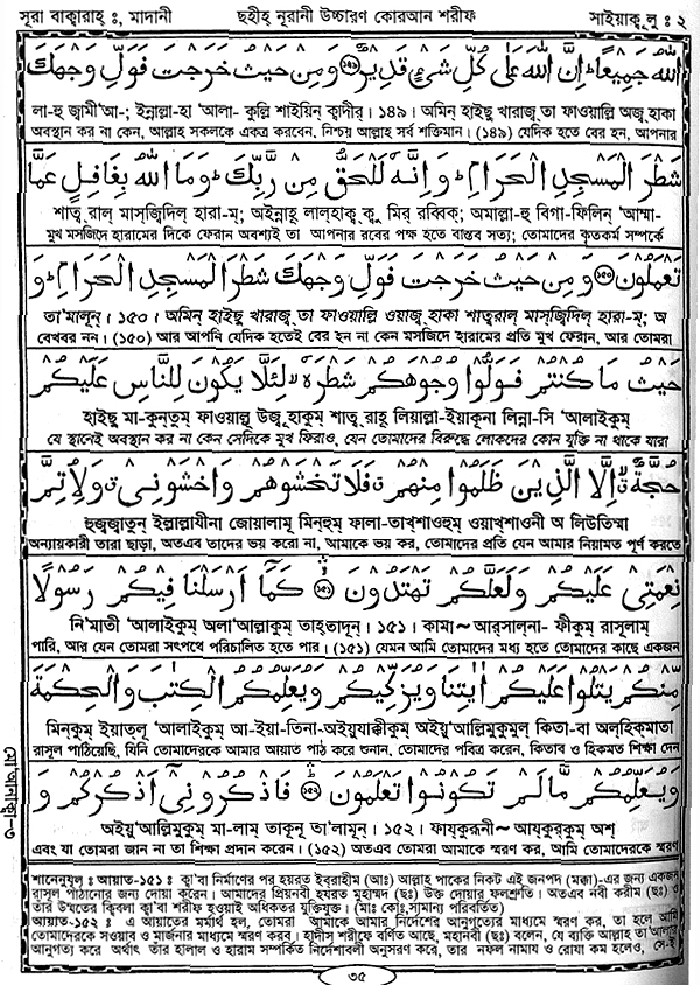 সূরা বাক্বারাহ্ ঃ, মাদানী ছহীহ্ নূরানী উচ্চারণ কোরআন শরীফ সাইয়াক্ব লু ঃ ২
الله جميعا ان الله على كل شيء قدير ۝ و من حيث خرجت فول وجهك
লা-হু জ্বামী'আ-; ইন্নাল্লা-হা 'আলা- কুল্লি শাইয়িন্ ক্বাদীর্। ১৪৯। অমিন্ হাইছু খারাজ্ব্ তা ফাওয়াল্লি অজ্ব্ হাকা
অবস্থান কর না কেন, আল্লাহ সকলকে একত্র করবেন, নিশ্চয় আল্লাহ সর্ব শক্তিমান। (১৪৯) যেদিক হতে বের হন, আপনার
شطر المسجد الحرام و انه للحق من ربك وما الله بغافل عما
শাত্ব্ রাল্ মাস্জ্বিদিল্ হারা-ম্; অইন্নাহূ লাল্হাক্ব্ ক্বু মির্ রব্বিক্; অমাল্লা-হু বিগা-ফিলিন্ 'আম্মা-
মুখ মসজিদে হারামের দিকে ফেরান অবশ্যই তা আপনার রবের পক্ষ হতে বাস্তব সত্য; তোমাদের কৃতকর্ম সম্পর্কে
تعملون ۝ و من حيث خرجت فول وجهك شطر المسجد الحرام و
তা'মালূন্। ১৫০। অমিন্ হাইছু খারাজ্ব্ তা ফাওয়াল্লি ওয়াজ্ব্ হাকা শাত্ব্ রাল্ মাস্জ্বিদিল্ হারা-ম্; অ
বেখবর নন। (১৫০) আর আপনি যেদিক হতেই বের হন না কেন মসজিদে হারামের প্রতি মুখ ফেরান, আর তোমরা
حيث ما كنتم فولوا وجوهكم شطره لئلا يكون للناس عليكم
হাইছু মা-কুন্তুম্ ফাওয়াল্লূ উজ্বূ হাকুম্ শাত্ব্ রাহূ লিয়াল্লা-ইয়াকূনা লিন্না-সি 'আলাইকুম্
যে স্থানেই অবস্থান কর না কেন সেদিকে মুখ ফিরাও, যেন তোমাদের বিরুদ্ধে লোকদের কোন যুক্তি না থাকে যারা
حجة الا الذين ظلموا منهم فلا تخشوهم واخشوني ولاتم
হুজ্জ্বাতুন্ ইল্লাল্লাযীনা জোয়ালামূ মিন্হুম্ ফালা-তাখ্শাওহুম্ ওয়াখ্শাওনী অ লিউতিম্মা
অন্যায়কারী তারা ছাড়া, অতএব তাদের ভয় করো না, আমাকে ভয় কর, তোমাদের প্রতি যেন আমার নিয়ামত পূর্ণ করতে
نعمتي عليكم ولعلكم تهتدون ۝ كما ارسلنا فيكم رسولا
নি'মাতী 'আলাইকুম্ অলা'আল্লাকুম্ তাহ্তাদূন্। ১৫১। কামা~ আর্সাল্না- ফীকুম্ রাসূলাম্
পারি, আর যেন তোমরা সৎপথে পরিচালিত হতে পার। (১৫১) যেমন আমি তোমাদের মধ্য হতে তোমাদের কাছে একজন
منكم يتلوا عليكم ايتنا ويزكيكم ويعلمكم الكتب والحكمة
মিন্কুম্ ইয়াত্লূ 'আলাইকুম্ আ-ইয়া-তিনা-অইয়ুযাক্কীকুম্ অইয়ু'আল্লিমুকুমুল্ কিতা-বা অল্হিক্মাতা
রাসূল পাঠিয়েছি, যিনি তোমাদেরকে আমার আয়াত পাঠ করে শুনান, তোমাদের পবিত্র করেন, কিতাব ও হিকমত শিক্ষা দেন
ويعلمكم ما لم تكونوا تعلمون ۝ فاذكروني اذكركم و
অইয়ু'আল্লিমুকুম্ মা-লাম্ তাকূনূ তা'লামূন্। ১৫২। ফায্কুরূনী~ আয্কুর্কুম্ অশ্
এবং যা তোমরা জান না তা শিক্ষা প্রদান করেন। (১৫২) অতএব তোমরা আমাকে স্মরণ কর, আমি তোমাদেরকে স্মরণ
মো'আনাক্বা-৩
শানেনুযূল ঃ আয়াত-১৫১ঃ ক্বা'বা নির্মাণের পর হযরত ইবরাহীম (আঃ) আল্লাহ পাকের নিকট এই জনপদ (মক্কা)-এর জন্য একজন
রাসূল পাঠানোর জন্য দোয়া করেন। আমাদের প্রিয়নবী হযরত মুহাম্মদ (ছঃ) উক্ত দোয়ার ফলশ্রুতি। অতএব নবী করীম (ছঃ) ও
তাঁর উম্মতের ক্বিবলা ক্বা'বা শরীফ হওয়াই অধিকতর যুক্তিযুক্ত। (মাঃ কোঃ, সামান্য পরিবর্তিত)
আয়াত-১৫২ ঃ এ আয়াতের মর্মার্থ হল, তোমরা আমাকে আমার নির্দেশের আনুগত্যের মাধ্যমে স্মরণ কর, তা হলে আমি
তোমাদেরকে সওয়াব ও মার্জনার মাধ্যমে স্মরণ করব। হাদীস শরীফে বর্ণিত আছে, মহানবী (ছঃ) বলেন, যে ব্যক্তি আল্লাহ তা'আলার
আনুগত্য করে অর্থাৎ তাঁর হালাল ও হারাম সম্পর্কিত নির্দেশাবলী অনুসরণ করে, তার নফল নামায ও রোযা কম হলেও, সে-ই
৩৫